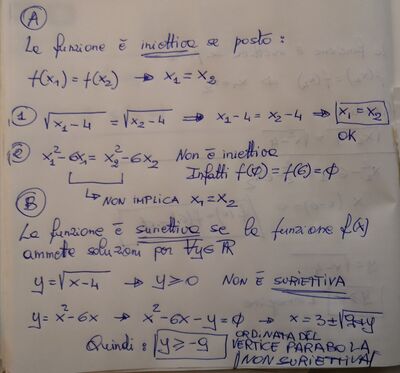 A
La funzione è iniettiva se posto:
f(x₁) = f(x₂) → x₁ = x₂
1 √x₁-4 = √x₂-4 ⇒ x₁-4 = x₂-4 ⇒ x₁ = x₂
OK
2 x₁²-6x₁ = x₂²-6x₂ Non è iniettiva
Infatti f(0) = f(6) = 0
↳ NON IMPLICA x₁=x₂
B
La funzione è suriettiva se la funzione f(x)
ammette soluzioni per ∀y∈ℝ
y = √x-4 → y ≥ 0 NON È SURIETTIVA
y = x²-6x → x²-6x-y = 0 → x = 3±√9+y
Quindi: y ≥ -9 ORDINATA DEL
VERTICE PARABOLA
/NON SURIETTIVA/